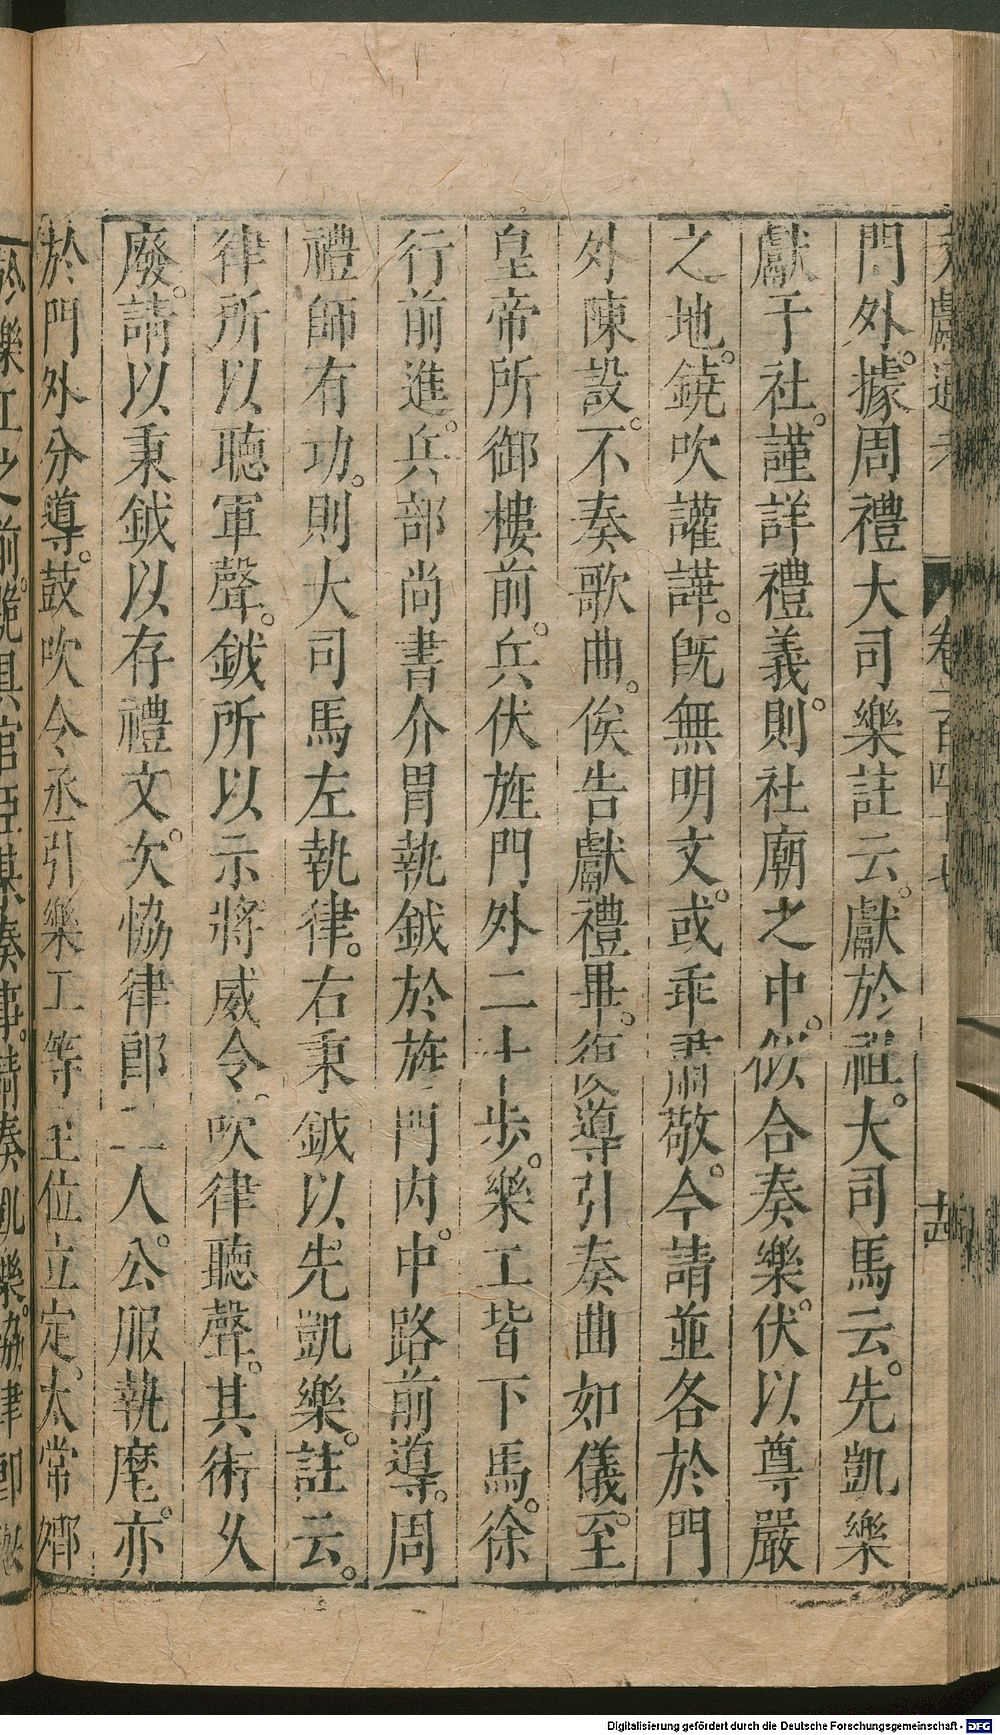 文獻通考 卷一百四十七 十四
門外據周禮大司樂註云獻於祖大司馬云先凱樂
獻于社謹詳禮義則社廟之中似合奏樂伏以尊嚴
之地鐃吹讙譁既無明文或乖肅敬今請並各於門
外陳設不奏歌曲俟告獻禮畢復導引奏曲如儀至
皇帝所御樓前兵仗旌門外二十步樂工皆下馬徐
行前進兵部尚書介胄執鉞於旌門内中路前導周
禮師有功則大司馬左執律右秉鉞以先凱樂註云
律所以聽軍聲鉞所以示將威令吹律聽聲其術久
廢請以秉鉞以存禮文次恊律郎二人公服執麾亦
於門外分導鼓吹令丞引樂工等至位立定太常卿
於樂工之前跪具官臣某奏事請奏凱樂協律郎舉
Digitalisierung gefördert durch die Deutsche Forschungsgemeinschaft - DFG